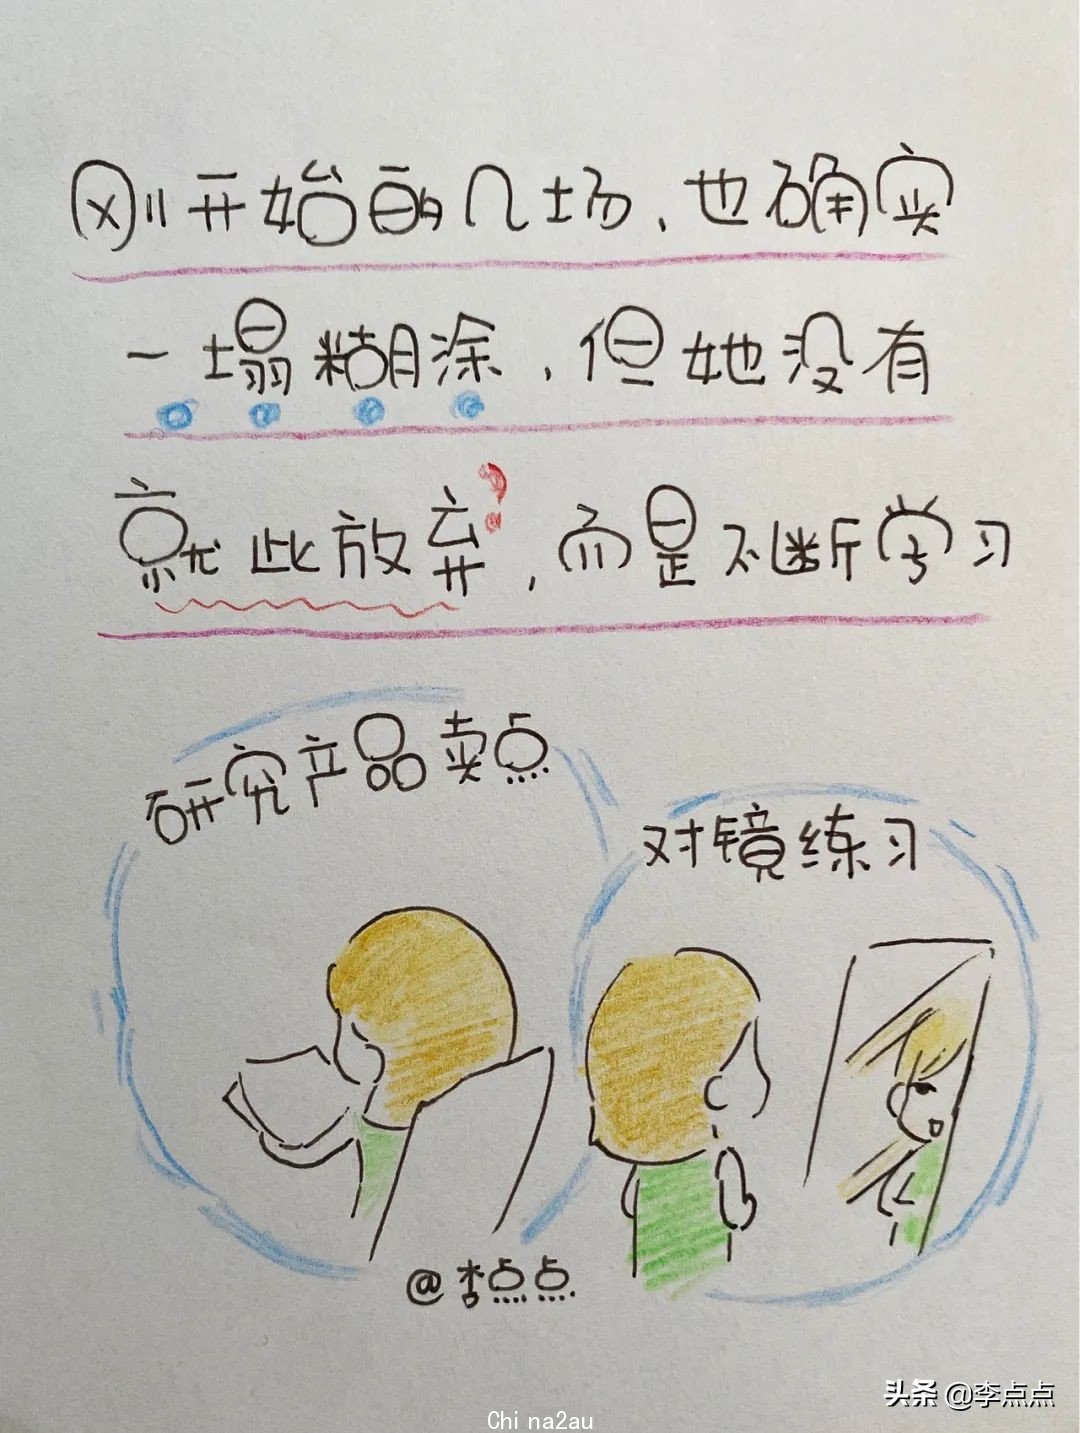 刚开始的几场，也确实
一塌糊涂，但她没有
就此放弃，而是不断学习
研究产品卖点
对镜练习
@李点点
头条 @李点点
Chi na2au